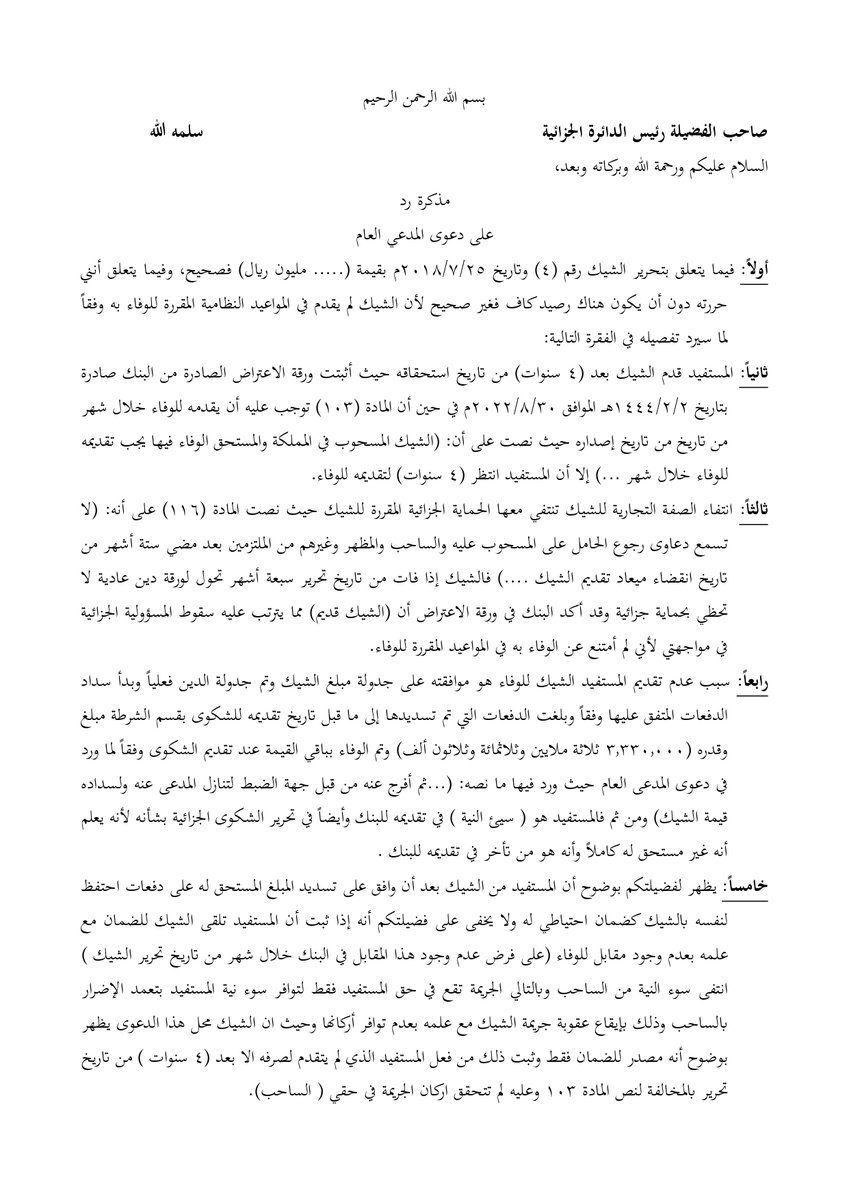 بسم الله الرحمن الرحيم
صاحب الفضيلة رئيس الدائرة الجزائية سلمه الله
السلام عليكم ورحمة الله وبركاته وبعد،
مذكرة رد
على دعوى المدعي العام
أولاً: فيما يتعلق بتحرير الشيك رقم (٤) وتاريخ ٢٠١٨/٧/٢٥م بقيمة (..... مليون ريال) فصحيح، وفيما يتعلق أنني
حررته دون أن يكون هناك رصيد كاف فغير صحيح لأن الشيك لم يقدم في المواعيد النظامية المقررة للوفاء به وفقاً
لما سيرد تفصيله في الفقرة التالية:
ثانياً: المستفيد قدم الشيك بعد (٤ سنوات) من تاريخ استحقاقه حيث أثبتت ورقة الاعتراض الصادرة من البنك صادرة
بتاريخ ١٤٤٤/٢/٢هـ الموافق ٢٠٢٢/٨/٣٠م في حين أن المادة (١٠٣) توجب عليه أن يقدمه للوفاء خلال شهر
من تاريخ من تاريخ إصداره حيث نصت على أن: (الشيك المسحوب في المملكة والمستحق الوفاء فيها يجب تقديمه
للوفاء خلال شهر ...) إلا أن المستفيد انتظر (٤ سنوات) لتقديمه للوفاء.
ثالثاً: انتفاء الصفة التجارية للشيك تنتفي معها الحماية الجزائية المقررة للشيك حيث نصت المادة (١١٦) على أنه: (لا
تسمع دعاوى رجوع الحامل على المسحوب عليه والساحب والمظهر وغيرهم من الملتزمين بعد مضي ستة أشهر من
تاريخ انقضاء ميعاد تقديم الشيك ....) فالشيك إذا فات من تاريخ تحرير سبعة أشهر تحول لورقة دين عادية لا
تحظي بحماية جزائية وقد أكد البنك في ورقة الاعتراض أن (الشيك قديم) مما يترتب عليه سقوط المسؤولية الجزائية
في مواجهتي لأني لم أمتنع عن الوفاء به في المواعيد المقررة للوفاء.
رابعاً: سبب عدم تقديم المستفيد الشيك للوفاء هو موافقته على جدولة مبلغ الشيك وتم جدولة الدين فعلياً وبدأ سداد
الدفعات المتفق عليها وفقاً وبلغت الدفعات التي تم تسديدها إلى ما قبل تاريخ تقديمه للشكوى بقسم الشرطة مبلغ
وقدره (٣,٣٣٠,٠٠٠ ثلاثة ملايين وثلاثمائة وثلاثون ألف) وتم الوفاء بباقي القيمة عند تقديم الشكوى وفقاً لما ورد
في دعوى المدعى العام حيث ورد فيها ما نصه: (...ثم أفرج عنه من قبل جهة الضبط لتنازل المدعى عنه ولسداده
قيمة الشيك) ومن ثم فالمستفيد هو ( سيئ النية ) في تقديمه للبنك وأيضاً في تحرير الشكوى الجزائية بشأنه لأنه يعلم
أنه غير مستحق له كاملاً وأنه هو من تأخر في تقديمه للبنك .
خامساً: يظهر لفضيلتكم بوضوح أن المستفيد من الشيك بعد أن وافق على تسديد المبلغ المستحق له على دفعات احتفظ
لنفسه بالشيك كضمان احتياطي له ولا يخفى على فضيلتكم أنه إذا ثبت أن المستفيد تلقى الشيك للضمان مع
علمه بعدم وجود مقابل للوفاء (على فرض عدم وجود هذا المقابل في البنك خلال شهر من تاريخ تحرير الشيك )
انتفى سوء النية من الساحب وبالتالي الجريمة تقع في حق المستفيد فقط لتوافر سوء نية المستفيد بتعمد الإضرار
بالساحب وذلك بإيقاع عقوبة جريمة الشيك مع علمه بعدم توافر أركانها وحيث ان الشيك محل هذا الدعوى يظهر
بوضوح أنه مصدر للضمان فقط وثبت ذلك من فعل المستفيد الذي لم يتقدم لصرفه الا بعد (٤ سنوات ) من تاريخ
تحرير بالمخالفة لنص المادة ١٠٣ وعليه لم تتحقق اركان الجريمة في حقي ( الساحب).